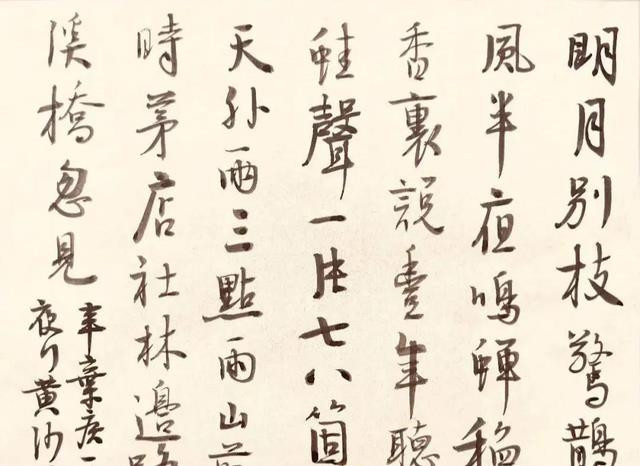 明月别枝驚鵲
風半夜鳴蟬稻
香裏説豊年聽
蛙聲一片七八箇
天外兩三點雨山前
時茅店社林邊路
溪橋忽見
辛棄疾
夜行黄沙